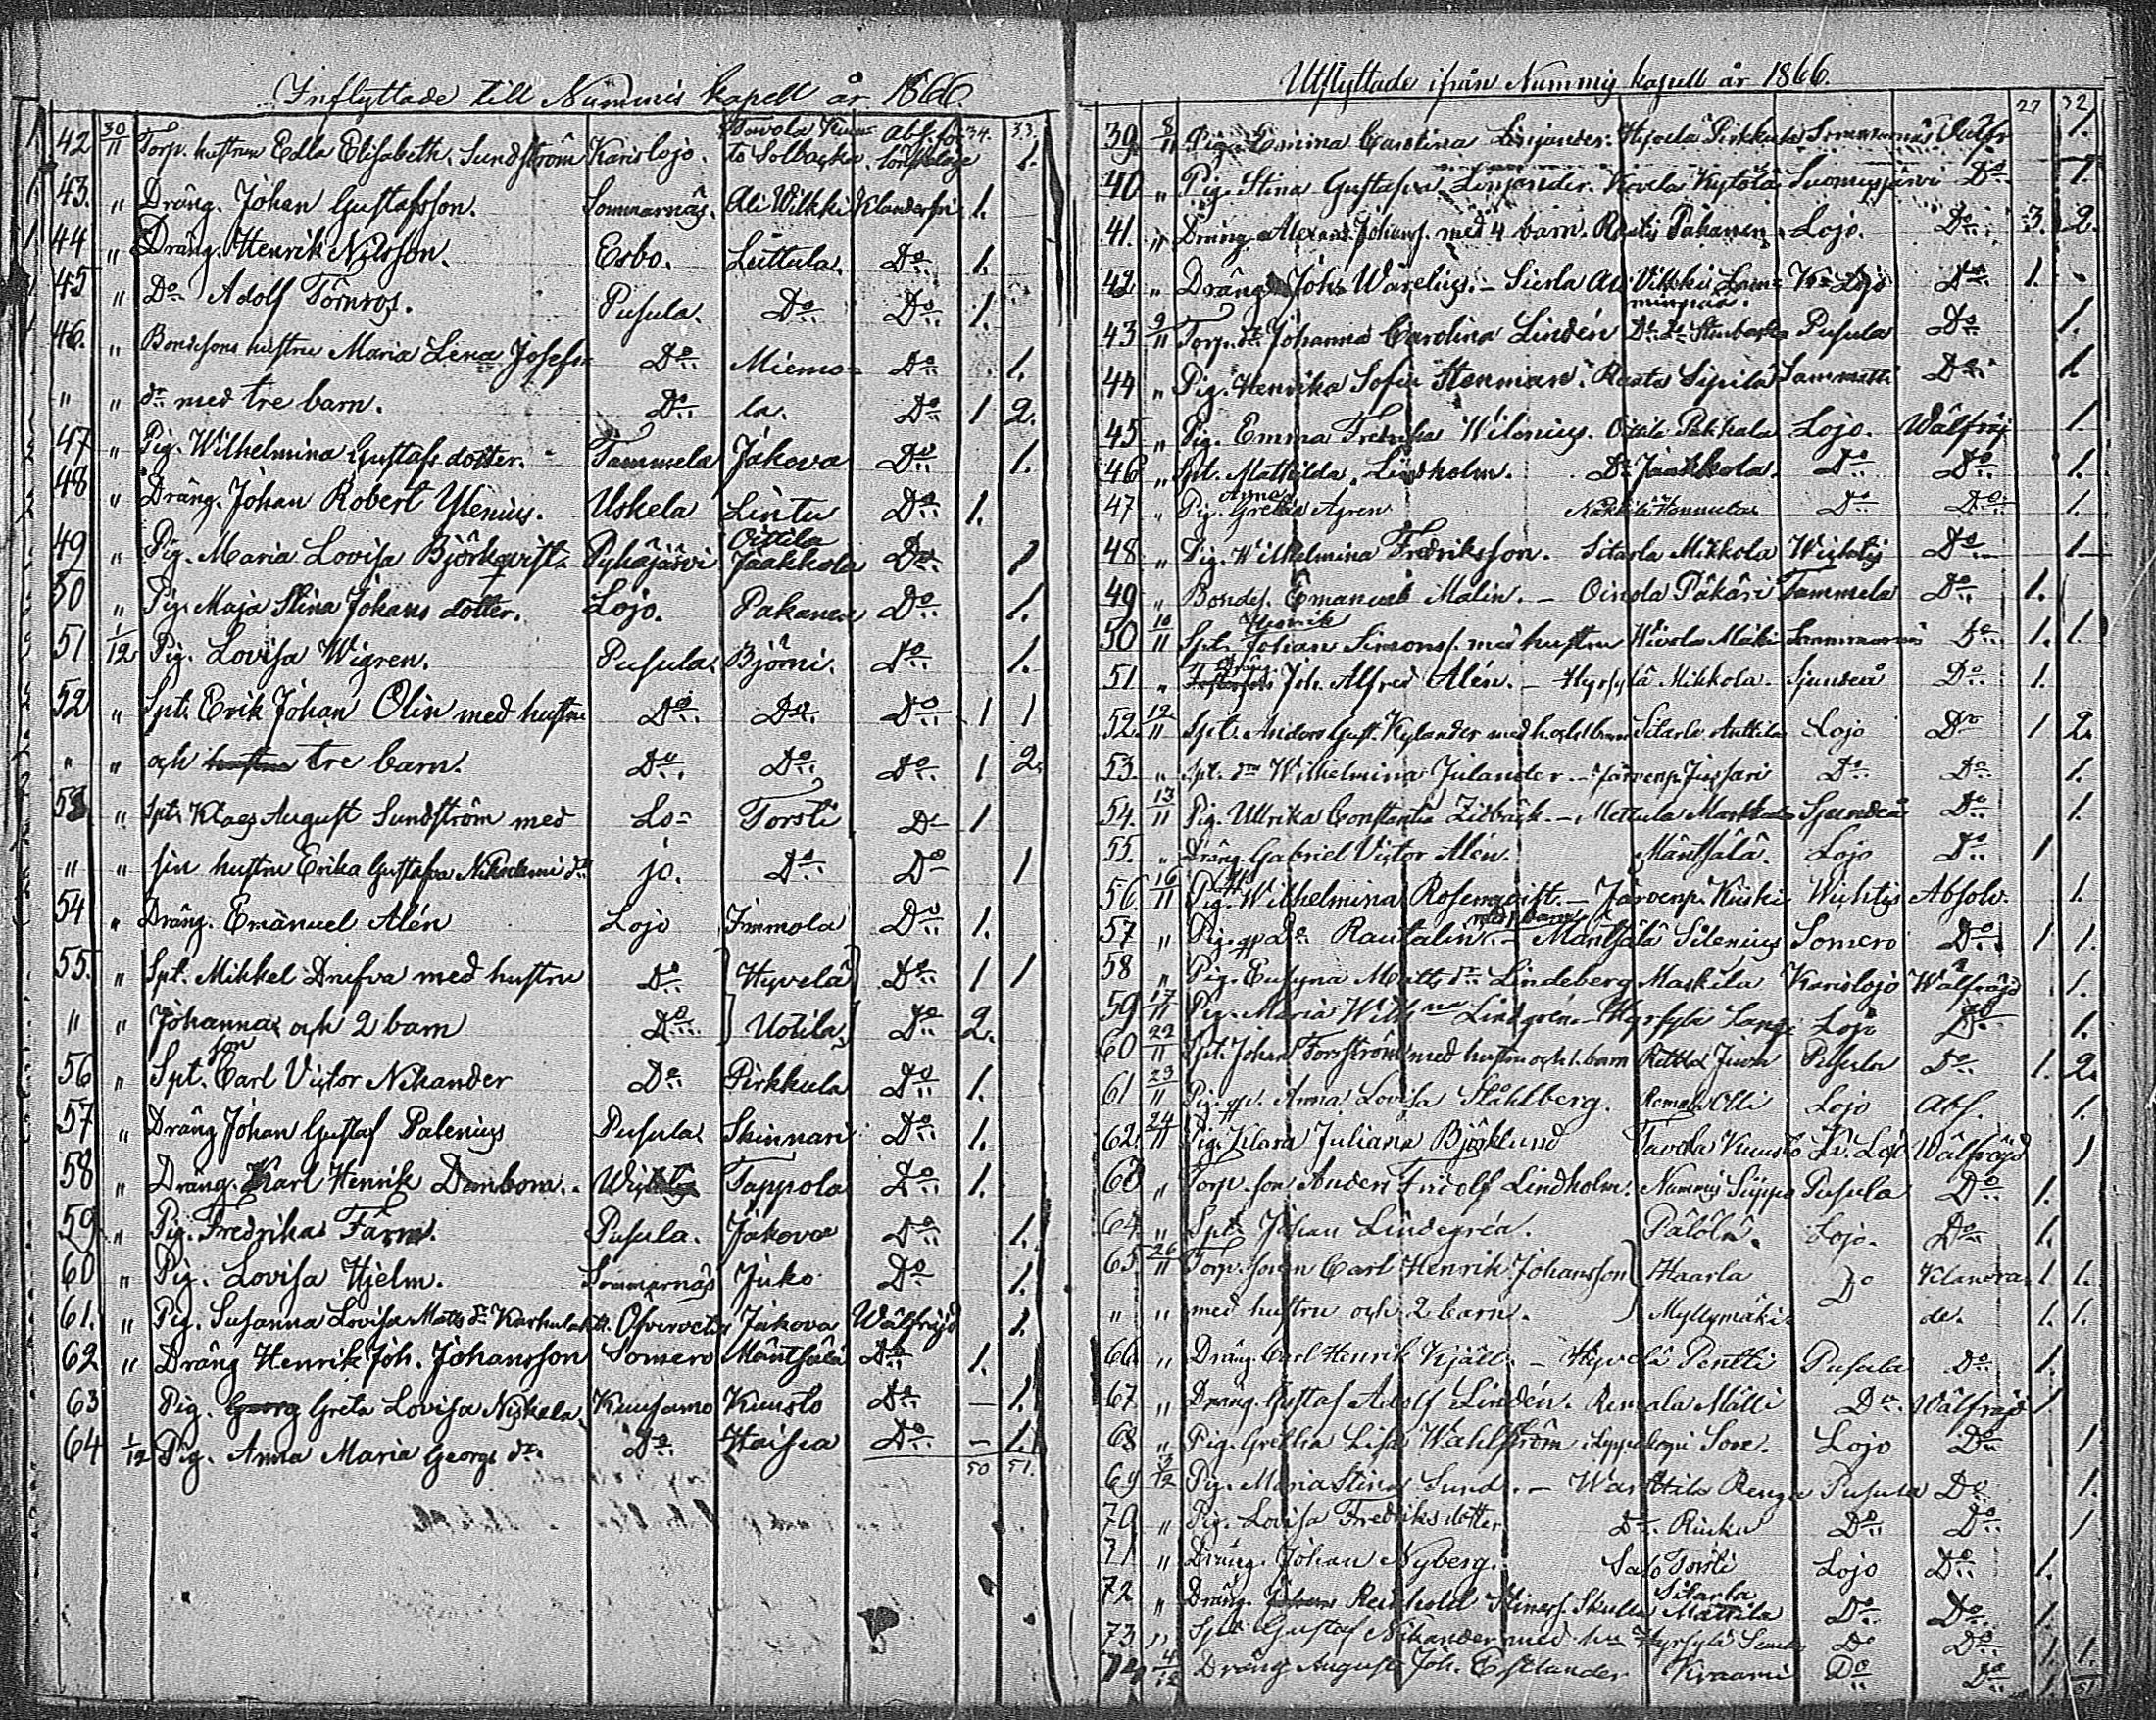 Inflyttade till Nummis kapell år 1866.
34. 33.
42 30/11 Torp. hustrun Edla Elisabeth Sundström Karislojo. Tavola Kuusto Solbacka Abs. för lönskaläge 1.
43. " Dräng. Johan Gustafsson. Sommarnäs. Ali Wilkki Klanderfri 1.
44 " Dräng. Henrik Nilsson. Esbo. Luttula. Do 1.
45 " Do Adolf Törnros. Pusula. Do Do 1.
46. " Bondesons hustru Maria Lena Josefs Do Miemo= Do 1.
" " dr med tre barn. Do la. Do 1 2.
47 " Pig. Wilhelmina Gustafs dotter. Tammela Jakova Do 1.
48 " Dräng. Johan Robert Ylenius. Uskela Lintu Do 1.
49 " Pig. Maria Lovisa Björkqvist Pyhäjärvi Oittila Jaakkola Do 1
50 " Pig. Maja Stina Johans dotter. Lojo. Pakanen Do 1.
51 1/12 Pig. Lovisa Wigren. Pusula. Björni. Do 1.
52 " Spt. Erik Johan Olin med hustru Do Do Do 1 1
" " och hustru tre barn. Do Do Do 1 2.
53 " Spt. Klaes August Sundström med Lo= Torsti Do 1
" " sin hustru Erika Gustafva Nikodemi dr jo. Do Do 1
54 " Dräng. Emanuel Alén Lojo Immola Do 1.
55. " Spt. Mikkel Drufva med hustru Do Hyvelä Do 1 1
" " Johanna och 2 barn Do Uotila. Do 2.
56 " Spt. son Carl Victor Nikander Do Pirkkula Do 1.
57 " Dräng Johan Gustaf Palenius Pusula Skinnari Do 1.
58 " Dräng. Karl Henrik Dambom. Wichtis Tappola Do 1.
59 " Pig. Fredrika Färm. Pusula. Jakova Do 1.
60 " Pig. Lovisa Hjelm. Sommarnäs Juko Do 1.
61. " Pig. Susanna Lovisa Matts dr Jakova Wälfräjd 1.
62 " Dräng Henrik Joh. Johansson Somero Mäntsälä Do 1.
63 " Pig. Georg Greta Lovisa Niskala. Kuusamo Kuusto Do – 1.
64 1/12 Pig. Anna Maria Georgs dr. Do Haisia Do – 1.
50 51.
Utflyttade ifrån Nummis kapell år 1866.
27 32
39 8/11 Pig. Emina Carolina Linjander. Hyvelä Pirkkula Sommarnäs Wälfr 1.
40 " Pig. Stina Gustafva Linjander. Kovela Kytölä Suomusjärvi Do 1.
41. " Dräng Alexand. Johanss. med 4 barn. Raatis Pakanen Lojo. Do 3. 2.
42 " Dräng Joh. Warelius. – Sierla Ali Vilkki Lam=minpää. K= Lojo Do 1.
43 9/11 Torp. dr. Johanna Carolina Lindén Do Stenbacka Pusula Do 1.
44 " Pig. Henrika Sofia Stenman. Raata Sipilä Sammatti Do 1.
45 " Pig. Emma Fredrika Wilenius. Oittila Pakkala Lojo. Wälfräj 1
46 " Spt. Mathilda Lindholm. Do Jaakkola. Do Do 1.
47 " Pig. Greta Agren Hannula Do Do 1.
48 " Pig. Wilhelmina Fredriksson. Sitarla Mikkola Wichtis Do 1
49 " Bondes. Emanuel Malin. – Oinola Päkäri Tammela Do 1.
50 10/11 Spt. Henrik Johan Simonss. med hustru Mäki Sommarnäs Do 1. 1.
51 " Dräng Joh. Alfred Alén. – Hyrsylä Mikkola. Sjundeå Do 1.
52. 12/11 Spt. Anders Gust. Kylander med h. och 1 barn Sitarla Anttila Lojo Do 1 2.
53. " Spt. dr Wilhelmina Julander. – Järvenp. Jussari Do Do 1.
54. 13/11 Pig. Ullrika Constantia Zidbäck. – Mettula Markkula Sjundeå Do 1.
55. " Dräng. Gabriel Victor Alén. Mäntsälä. Lojo Do 1
56. 16/11 Pig. Wilhelmina Rosenqvist. – Järvenp. Kiiski Wichtis Absolv. 1.
57 " Pig. Rautalin. med 1 barn – Mäntsälä Silenius Somero Do 1 1.
58 " Pig. Matts dr Lindeberg Maskila Karislojo Wälfräjd 1.
59 17/11 Pig. Maria Wilh:na Lindgrén. Hyrsylä Lojo Do 1.
60 22/11 Spt. Johan Forsström med hustru och 1. barn Juva Pusula Do 1. 2.
61 23/11 Pig. Anna Lovisa Ståhlberg. Remala Olli Lojo Abs. 1.
62. 24/11 Pig. Klara Juliana Björklund Tavola Kuusto K. Lojo Wälfräjd 1
63 " Torp. son Anders Fridolf Lindholm. Nummis Suppo Pusula Do 1.
64. " Spt. Johan Lindegrén. Pälölä. Lojo. Do 1.
65 26/11 Torp. sonen Carl Henrik Johansson Haarla Do Klandra 1. 1.
" " med hustru och 2 barn. Myllymäki. de. 1. 1.
66 " Dräng. Carl Henrik Kjäll. – Hyvelä Pentti Pusula Do 1.
67 " Dräng. Gustaf Adolf Lindén. Remala Mälli Do. Wälfräjd 1
68 " Pig. Gretha Lisa Wahlström. Lojo Do 1
69 3/12 Pig. Maria Stina Sund. – Warttila Renga Pusula Do 1.
70 " Pig. Lovisa Fredriks dotter Do. Do Do 1
71 " Dräng. Johan Nyberg. Salo Torsti Lojo Do 1.
72 " Dräng. Johan Reinhold Sitarla Mattila Do Do 1.
73. " Spt. Gustaf Nikander med h. Hyrsylä Do Do 1. 1.
74 4/12 Dräng August Joh. Estlander Kvaami Do Do 1. 51